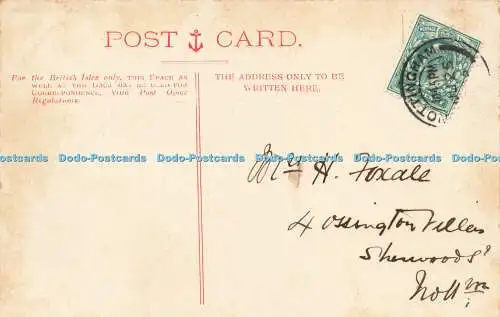 POST CARD.
For the British Isles only, THIS SPACE AS
WELL AS THE BACK MAY BE USED FOR
CORRESPONDENCE, VIDE Post Office
Regulations.
THE ADDRESS ONLY TO BE
WRITTEN HERE.
NOTTINGHAM
Dodo-Postcards Dodo-Postcards Dodo-Postcards Dodo-Postcards
H. Foxall
4 Ossington Villas
Sherwood St
Nottm